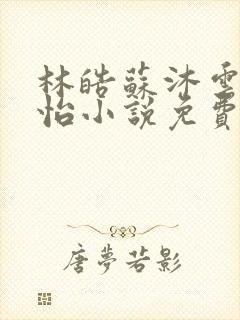 林皓蘇沐雪
怡小說免費
唐夢若影